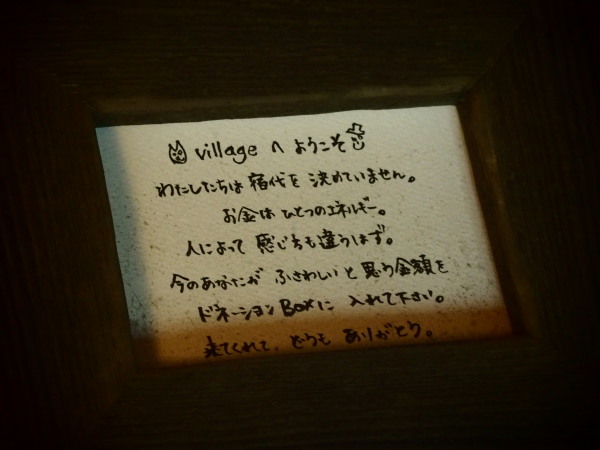 villageへようこそ
わたしたちは宿代を決めていません。
お金はひとつのエネルギー。
人によって感じ方も違うはず。
今のあなたがふさわしいと思う金額を
ドネーションBoxに入れて下さい。
来てくれて、どうもありがとう。